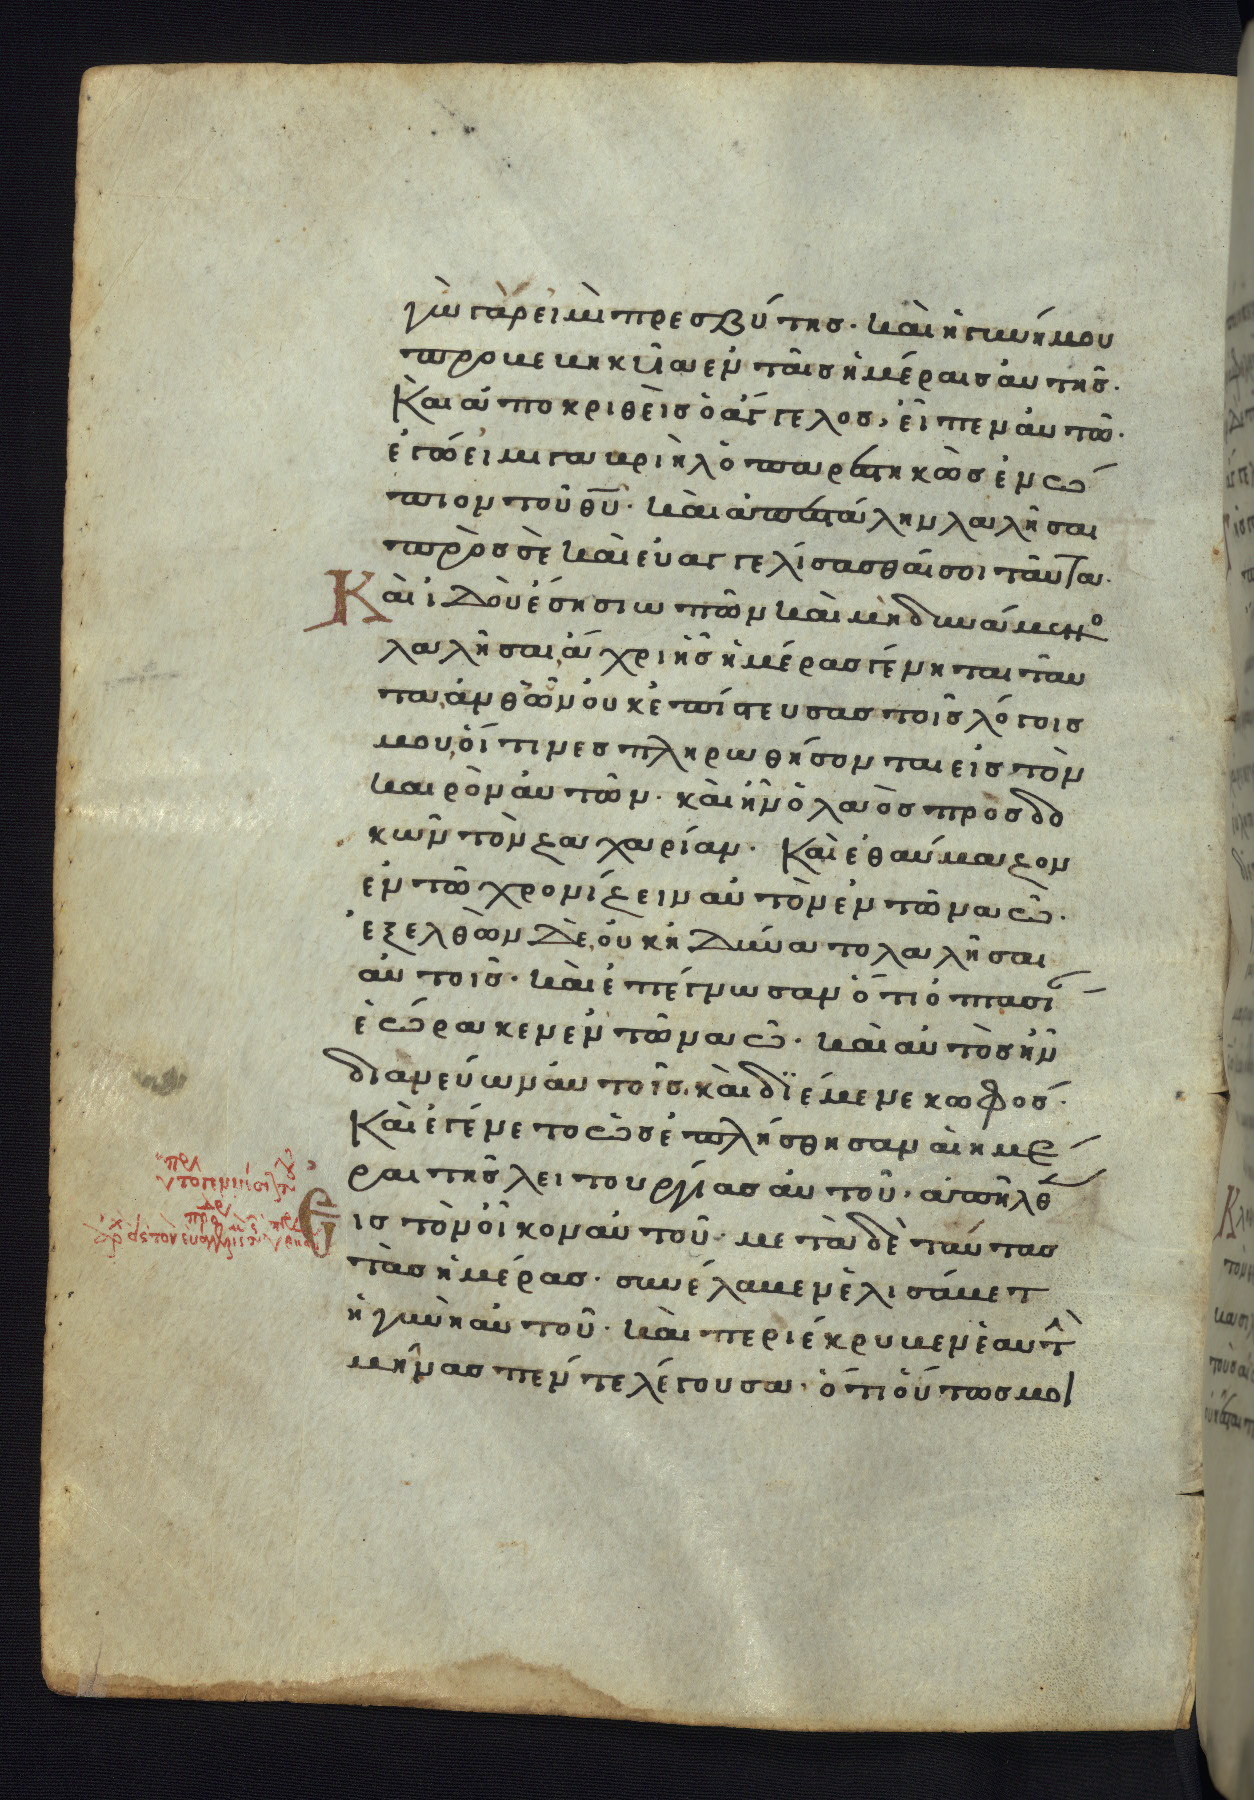 γὼ γάρ εἰμι πρεσβύτης· καὶ ἡ γυνή μου
προβεβηκυῖα ἐν ταῖς ἡμέραις αὐτῆς·
Καὶ ἀποκριθεὶς ὁ ἄγγελος, εἶπεν αὐτῶ·
ἐγώ εἰμι γαβριὴλ ὁ παρεστηκὼς ἐνώ
πιον τοῦ θυ· καὶ ἀπεστάλην λαλῆσαι
πρὸς σὲ καὶ εὐαγγελίσασθαί σοι ταῦτα·
Καὶ ἰδοὺ ἔση σιωπῶν καὶ μὴ δυνάμενο
λαλῆσαι, ἄχρι ἧς ἡμέρας γένηται ταῦ
τα, ἀνθ ὧν οὐκ ἐπίστευσας τοῖς λόγοις
μου, οἵτινες πληρωθήσονται εἰς τὸν
καιρὸν αὐτῶν· καὶ ἦν ὁ λαὸς προσδο
κῶν τὸν ζαχαρίαν· Καὶ ἐθαύμαζον
ἐν τῶ χρονίζειν αὐτὸν ἐν τῶ ναῶ·
ἐξελθὼν δὲ, οὐκ ἠδύνατο λαλῆσαι
αὐτοῖς· καὶ ἐπέγνωσαν ὅτι ὀπτασί
ἑώρακεν ἐν τῶ ναῶ· καὶ αὐτὸς ἦν
διανεύων αὐτοῖς· καὶ διέμενε κωφός·
Καὶ ἐγένετο ὡς ἐπλήσθησαν αἱ ἡμέ
ραι τῆς λειτουργίας αὐτοῦ· ἀπῆλθ
Εἰς τὸν οἶκον αὐτοῦ· μετὰ δὲ ταύτας
τὰς ἡμέρας· συνέλαβεν ἐλισάβετ
ἡ γυνὴ αὐτοῦ· καὶ περιέκρυβεν ἑαυτ
μῆνας πέντε λέγουσα· ὅτι οὕτως μοι